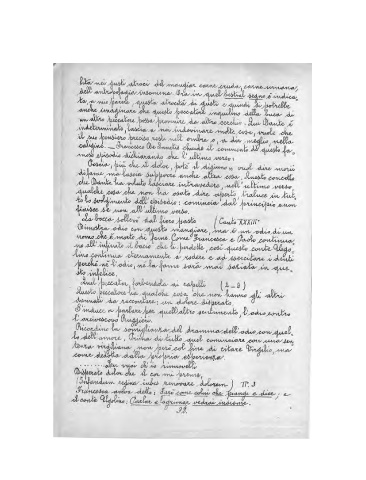 bità nei gusti atroci del mangiar carne cruda, carne umana,
dell'antropofagia insomma. Ora in quel bestial segno è indica-
ta, a mio parere, questa atrocità di gusti e quindi si potrebbe
anche imaginare che questo peccatore inquilino della buca di
un altro peccatore possa provenir da altro cerchio. Qui Dante è
indeterminato, lascia a noi indovinare molte cose, vuole che
il suo pensiero preciso resti nell'ombra o, a dir meglio nella
caligine. Francesco De Sanctis chiude il commento di questo fa-
moso episodio dichiarando che l'ultimo verso:
Poscia, più che il dolor, potè il digiuno,
ma lascia supporre anche altra cosa. Questo concetto
che Dante ha voluto lasciare intravedere, nell'ultimo verso
qualche cosa che non ha osato dire aperto
to lo svolgimento dell'episodio: comincia dal principio a non
finisce se non all'ultimo verso.
La bocca sollevò dal fiero pasto (Canto XXXIII°
Dimostra odio con questo mangiare, ma è un odio di un
uomo che è morto di fame. Come Francesca e Paolo continua-
no all'infinito il bacio che li perdette, così questo conte Ugo-
lino continua eternamente a rodere e ad esercitare i denti
perché nè l'odio, nè la fame sarà mai saziata in que-
sto infelice.
Quel peccator, forbendola ai capelli (2-3)
Questo peccatore ha qualche cosa che non hanno gli altri
dannati da raccontare: un dolore disperato.
S'induce a parlare per quell'altro sentimento, l'odio contro
l'arcivescovo Ruggieri.
Ricordino la somiglianza del dramma dell'odio con quel-
lo dell'amore. Prima di tutto quel cominciare con una sen-
tenza virgiliana non però col fine di citare Virgilio, ma
come dettata dalla propria esperienza.
........ Tu vuoi ch'io rinnovelli
Disperato dolor che il cor mi preme,
(Infandum regina iubes renovare dolorem) II. 3
Francesca aveva detto: Farò come colui che piange e dice, e
il conte Ugolino: Parlar e lagrimar vedrai insieme.